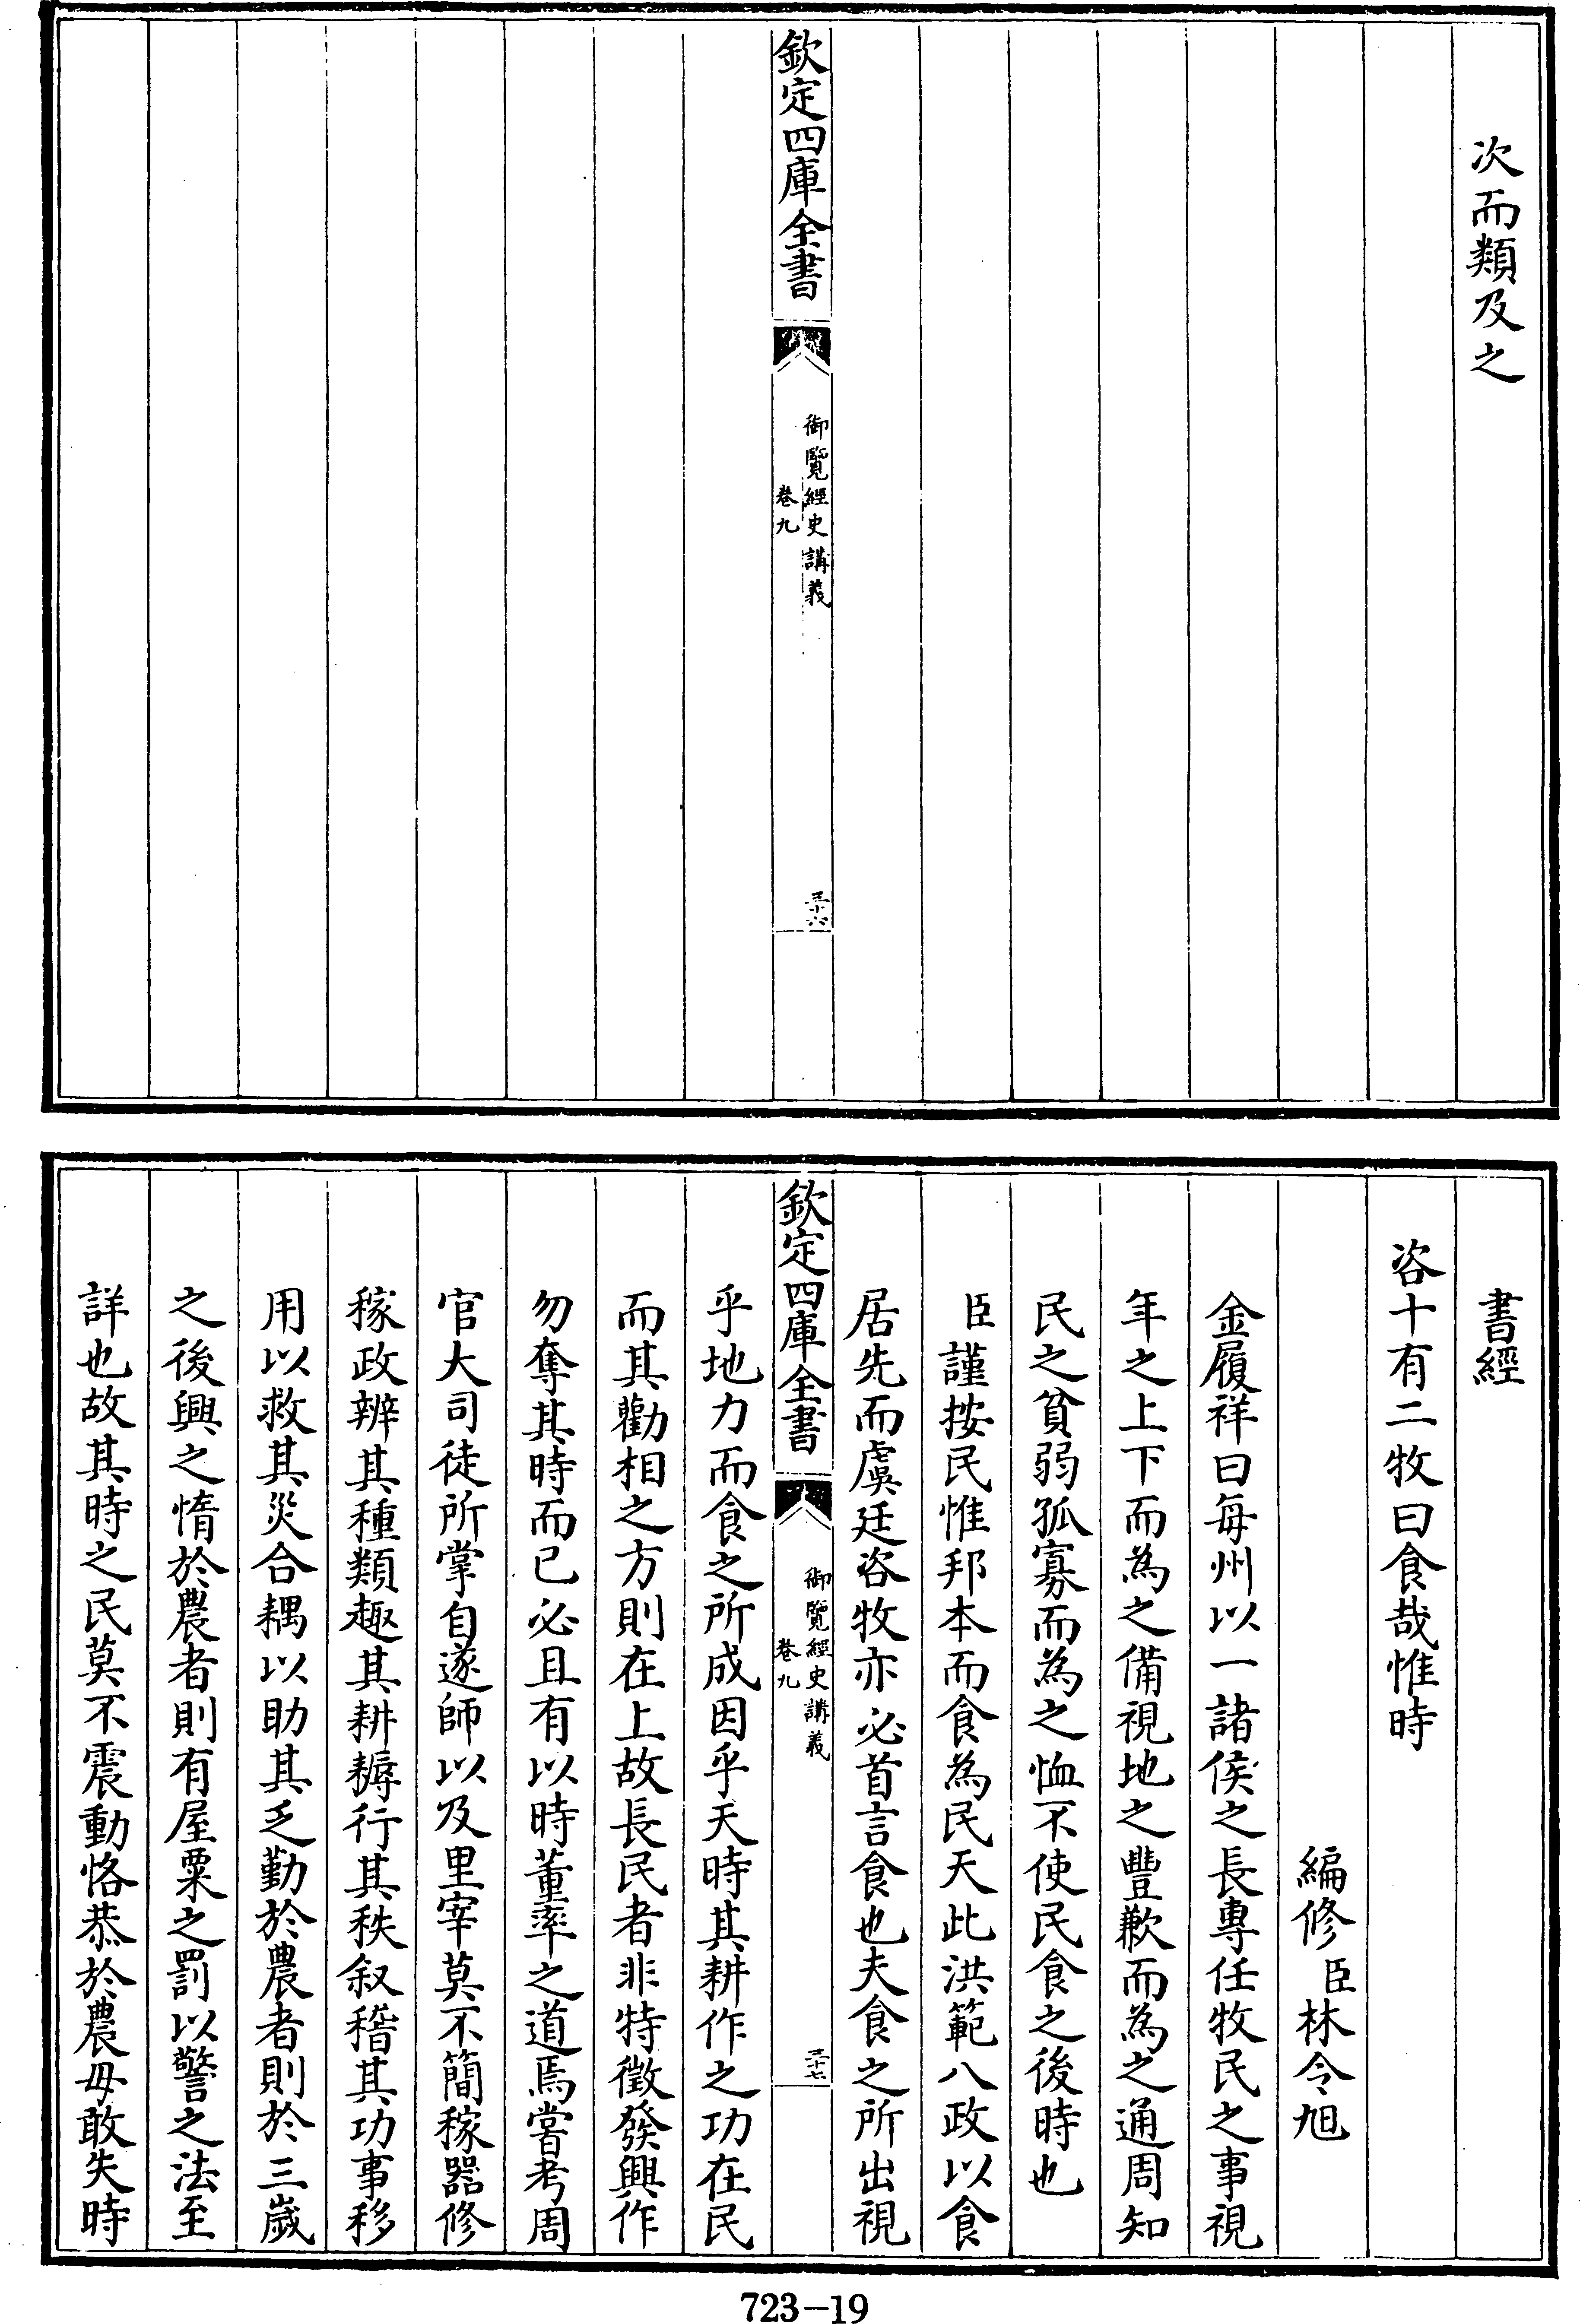 次而類及之
欽定四庫全書
御覽經史講義
卷九
三十六
書經
咨十有二牧曰食哉惟時
編修臣林令旭
金履祥曰每州以一諸侯之長專任牧民之事視
年之上下而為之備視地之豐歉而為之通周知
民之貧弱孤寡而為之恤不使民食之後時也
臣謹按民惟邦本而食為民天此洪範八政以食
居先而虞廷咨牧亦必首言食也夫食之所出視
欽定四庫全書
御覽經史講義
卷九
三十七
乎地力而食之所成因乎天時其耕作之功在民
而其勸相之方則在上故長民者非特徵發興作
勿奪其時而已必且有以時董率之道焉嘗考周
官大司徒所掌自遂師以及里宰莫不簡稼器修
稼政辨其種類趣其耕耨行其秩叙稽其功事移
用以救其災合耦以助其乏勤於農者則於三歲
之後興之惰於農者則有屋粟之罰以警之法至
詳也故其時之民莫不震動恪恭於農毋敢失時
723-19